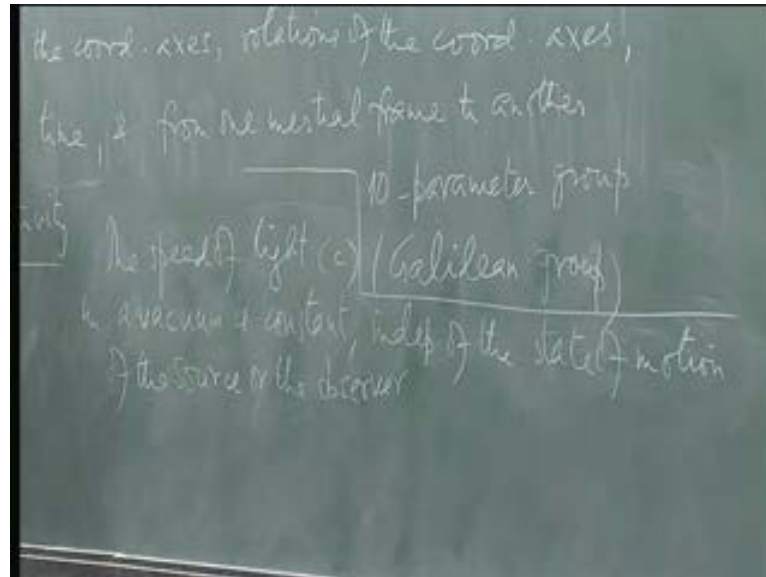 the coord. axes, rotations of the coord. axes,
time, & from one inertial frame to another
10-parameter group
(Galilean group)
ivity
The speed of light (c)
in a vacuum is constant, indep of the state of motion
of the source or the observer